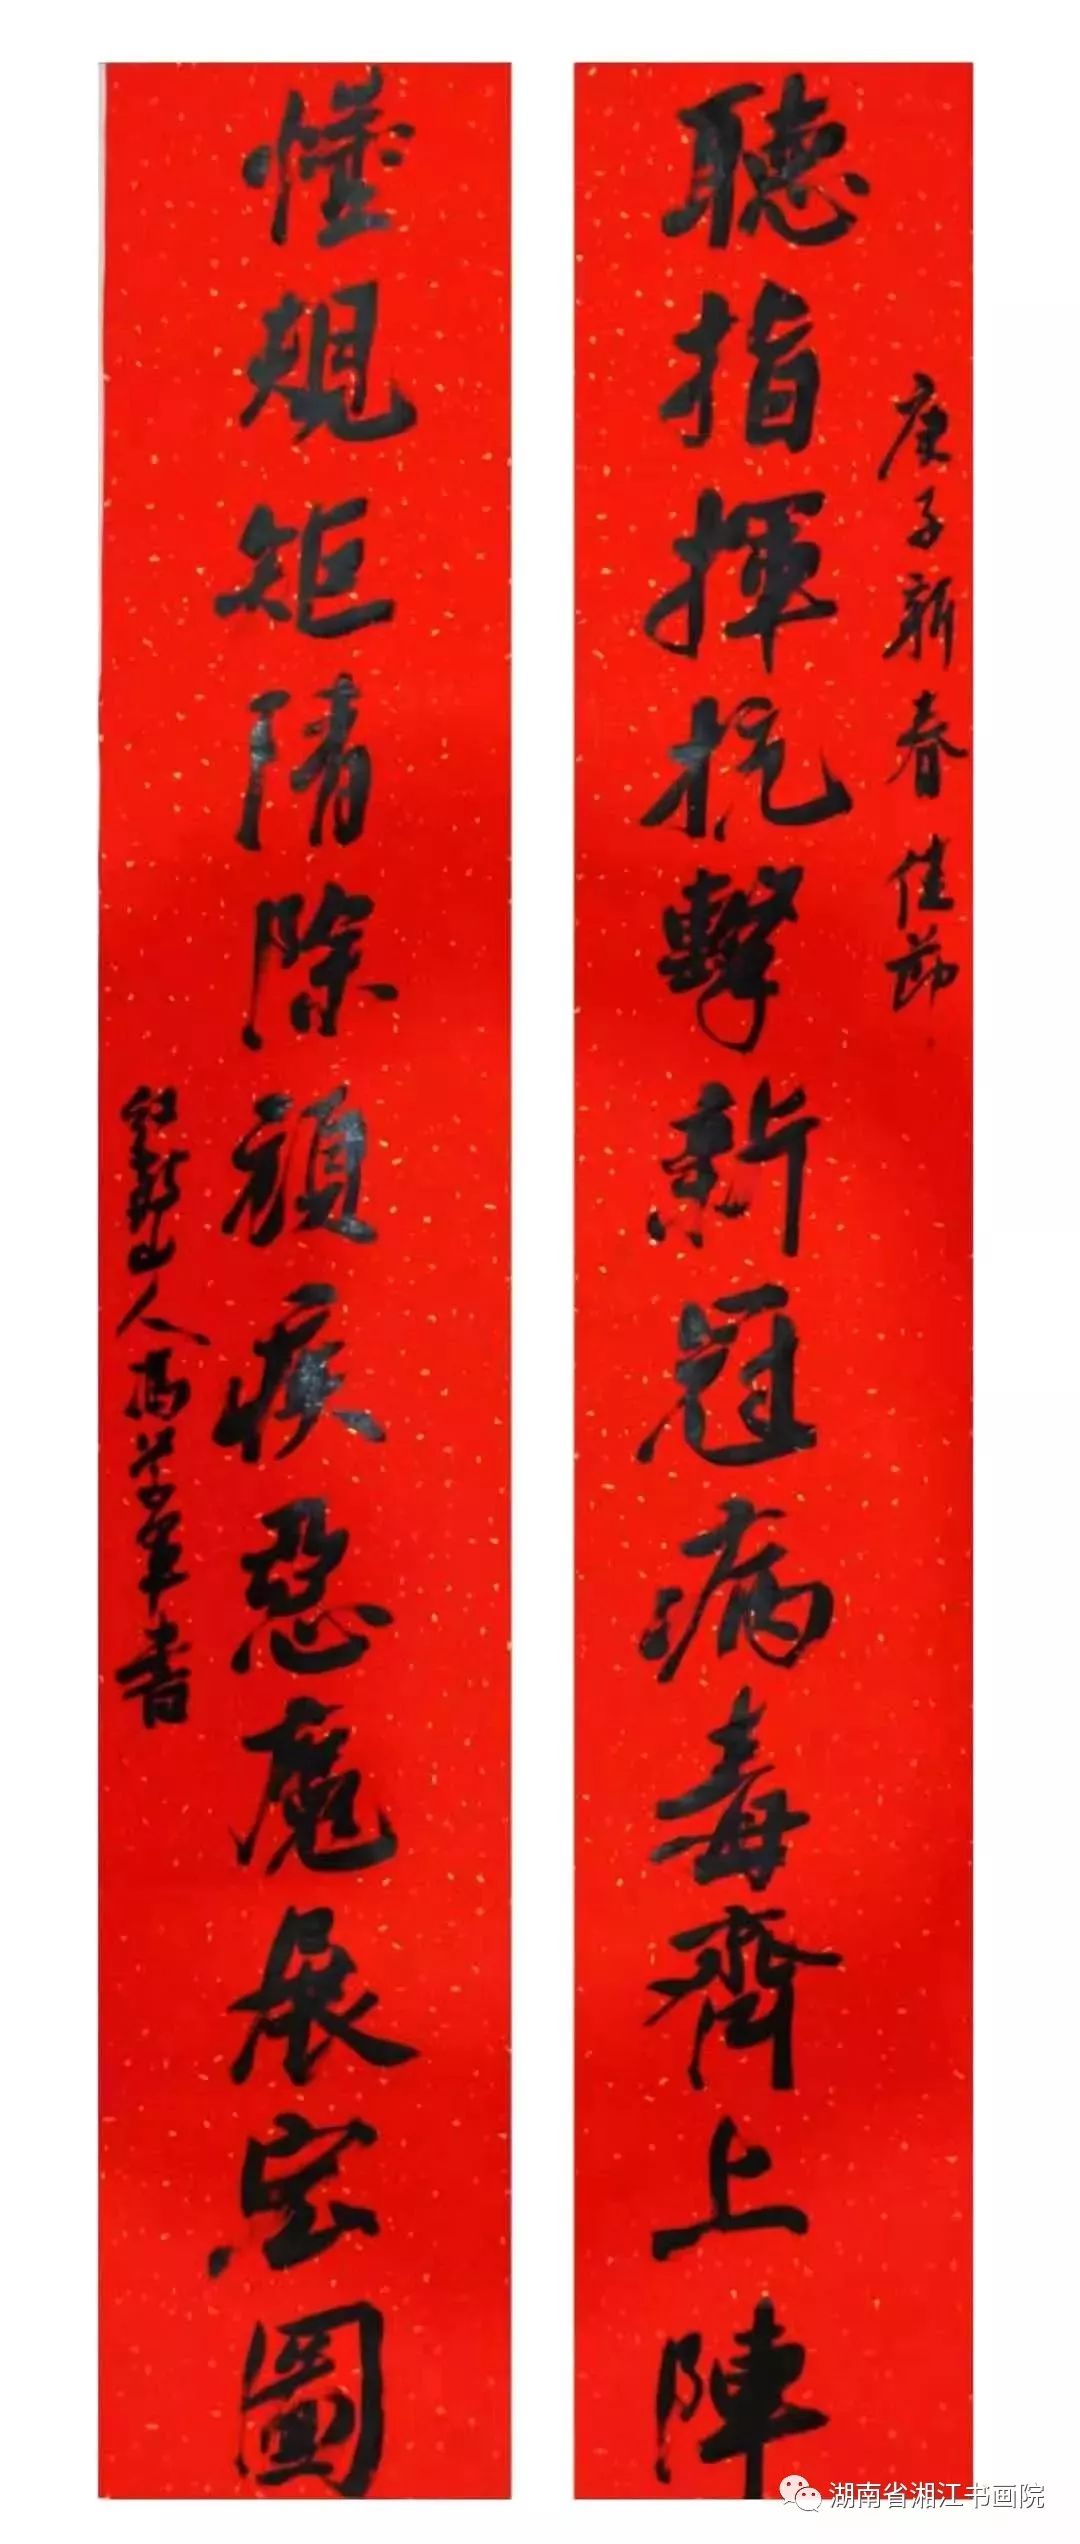 庚子新春佳節
聽指揮抗擊新冠病毒齊上陣
懂規矩清除頑疾惡魔展宏圖
山人書
湖南省湘江书画院